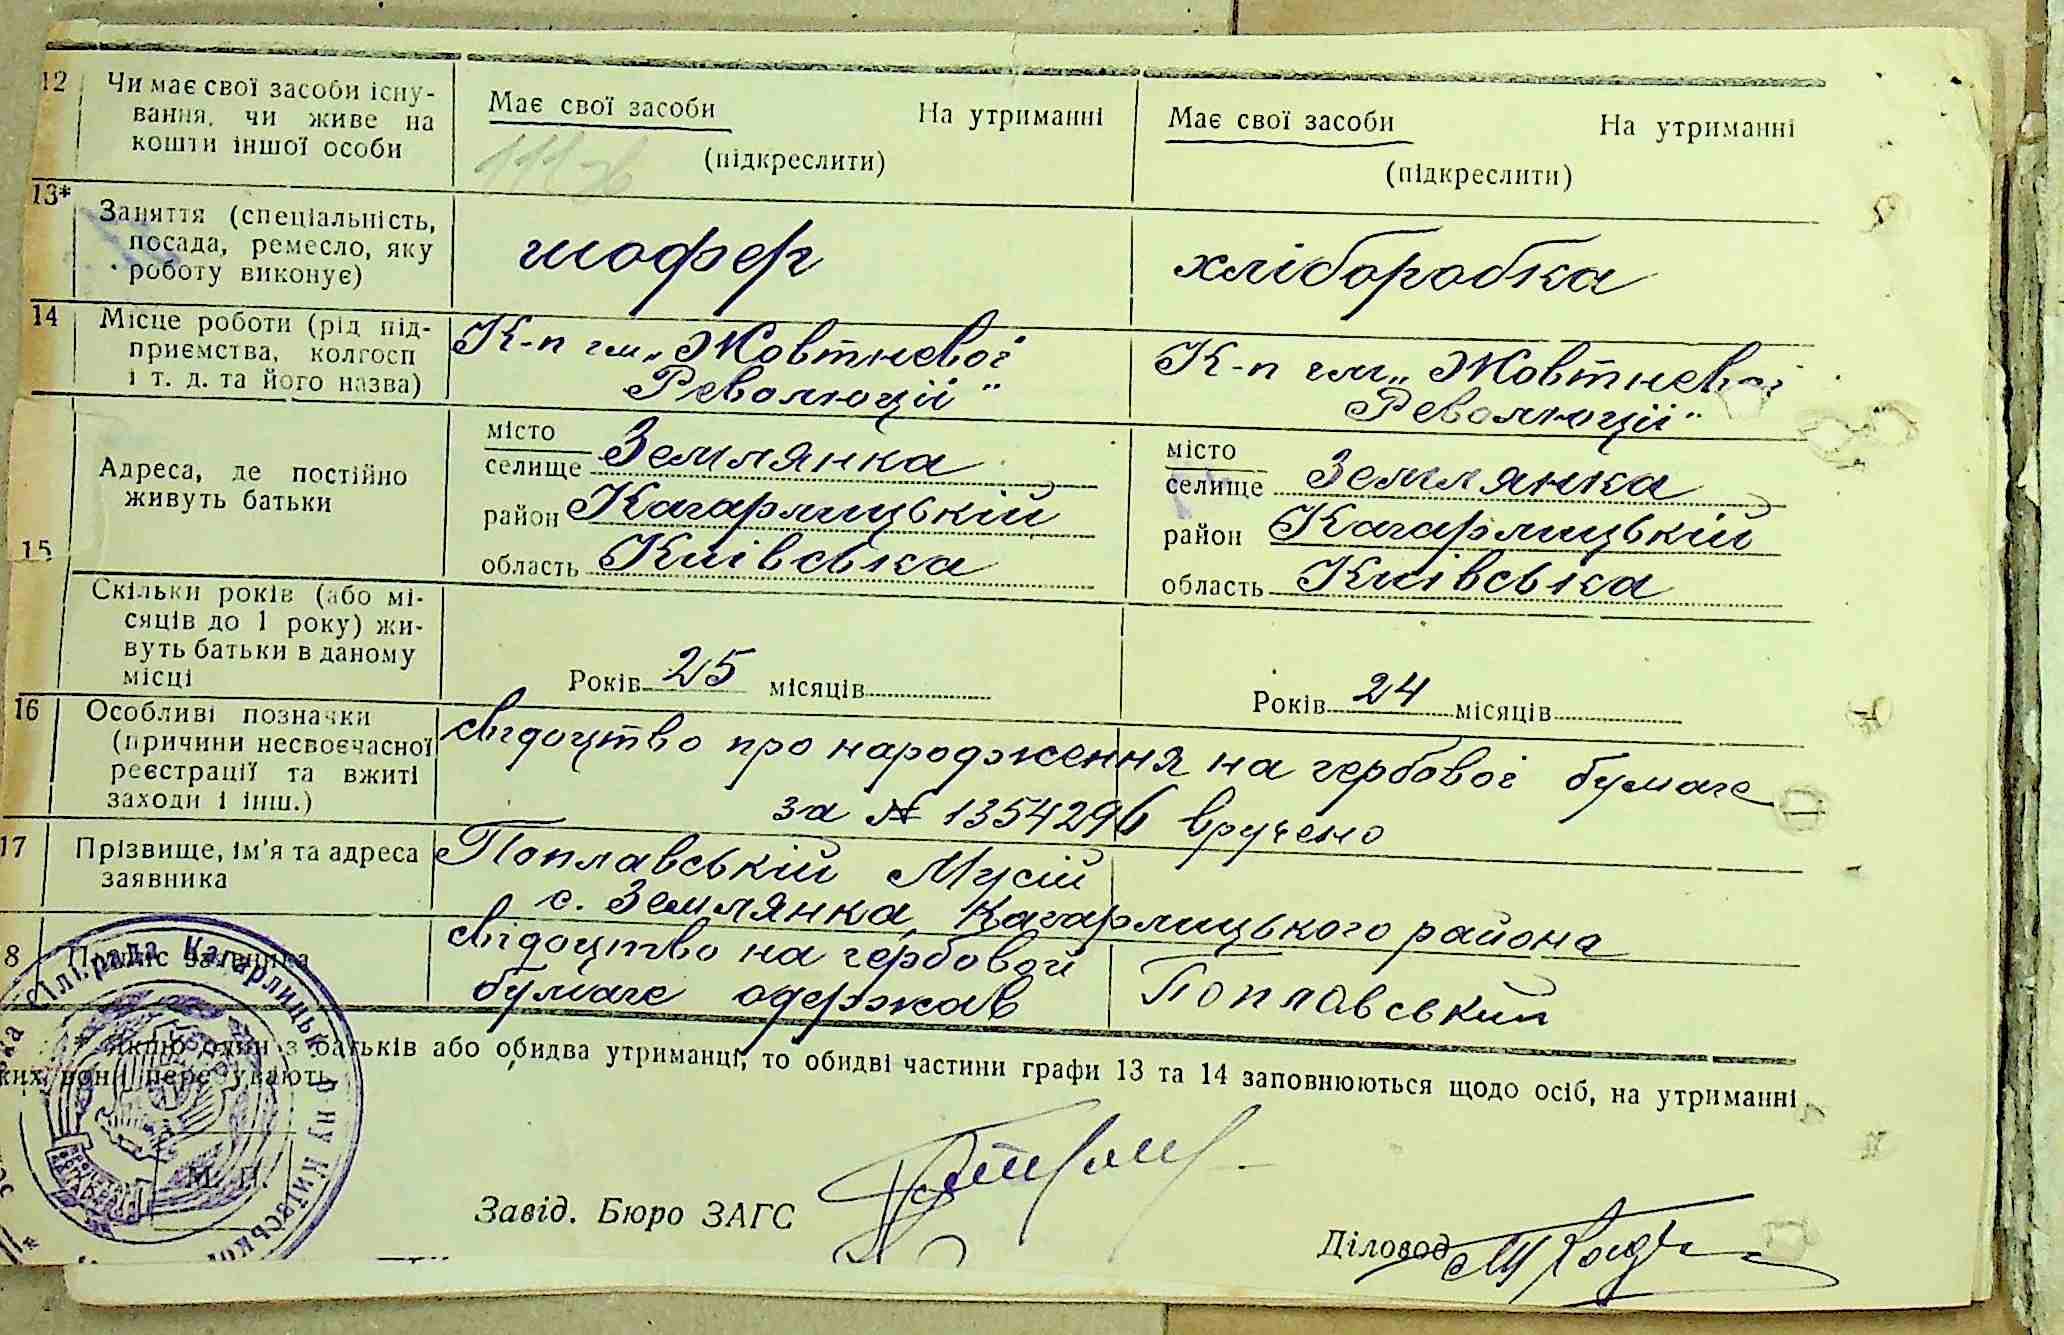 12 Чи має свої засоби існу-
вання, чи живе на
кошти іншої особи
Має свої засоби На утриманні
(підкреслити)
Має свої засоби На утриманні
(підкреслити)
13* Заняття (спеціальність,
посада, ремесло, яку
роботу виконує)
шофер
хліборобка
14 Місце роботи (рід під-
приємства, колгосп
і т. д. та його назва)
К-п ім „Жовтневої
Революції"
К-п ім „Жовтневої
Революції"
15 Адреса, де постійно
живуть батьки
місто
селище Землянка
район Кагарлицькій
область Київська
місто
селище Землянка
район Кагарлицькій
область Київська
Скільки років (або мі-
сяців до 1 року) жи-
вуть батьки в даному
місці
Років 25 місяців
Років 24 місяців
16 Особливі позначки
(причини несвоєчасної
реєстрації та вжиті
заходи і інш.)
свідоцтво про народження на гербової бумаге
за № 1354296 вручено
17 Прізвище, ім'я та адреса
заявника
Поплавській Мусій
с. Землянка, Кагарлицького района
8 Підпис заявника
свідоцтво на гербовой
бумаге одержав
Поплавський
* Якщо один з батьків або обидва утриманці, то обидві частини графи 13 та 14 заповнюються щодо осіб, на утриманні
ких вони перебувають.
сіл.рада Кагарлицьк ну Київської
М. П.
Завід. Бюро ЗАГС
Діловод